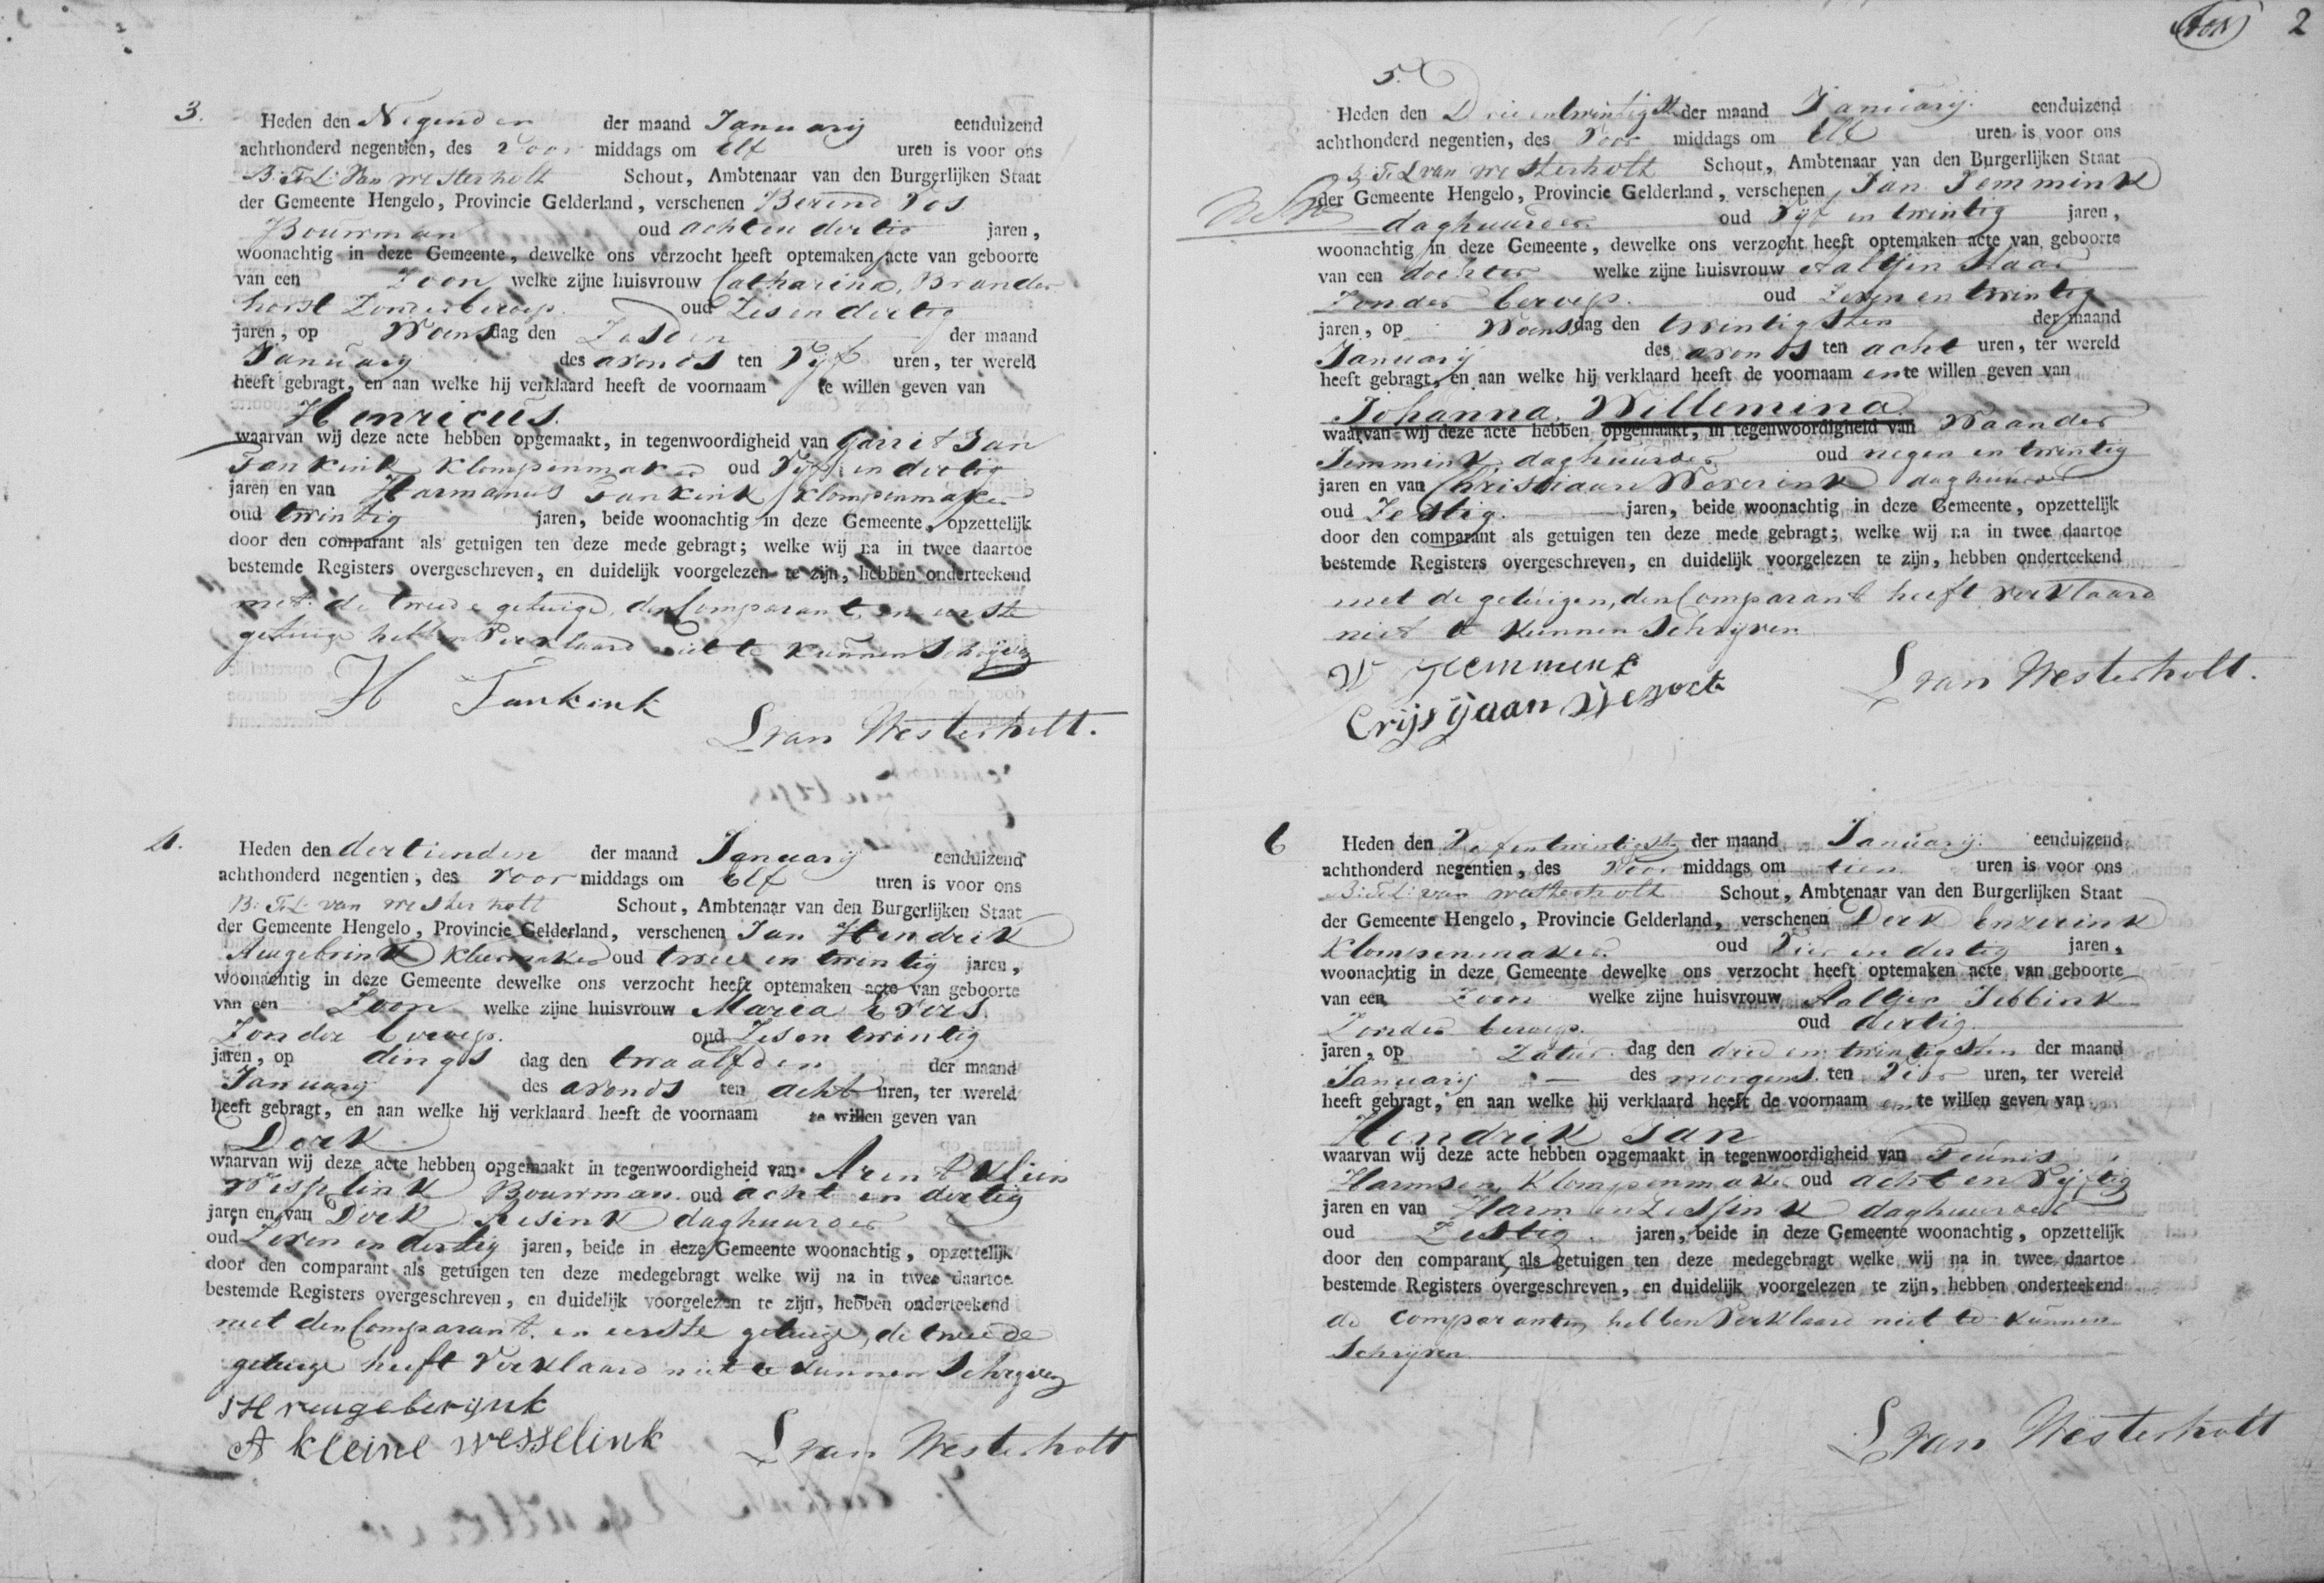 3.
Heden den Negenden der maand Januarij eenduizend
achthonderd negentien, des voor middags om Elf uren is voor ons
B: F: L: Van Westerholt Schout, Ambtenaar van den Burgerlijken Staat
der Gemeente Hengelo, Provincie Gelderland, verschenen Berend Vos
Bouwman oud acht en dertig jaren,
woonachtig in deze Gemeente, dewelke ons verzocht heeft optemaken acte van geboorte
van een Zoon welke zijne huisvrouw Catharina Brander
horst Zonder beroep. oud Zes en dertig
jaren, op Woens dag den Zesden der maand
Januarij des avonds ten Vijf uren, ter wereld
heeft gebragt, en aan welke hij verklaard heeft de voornaam te willen geven van
Henricus.
waarvan wij deze acte hebben opgemaakt, in tegenwoordigheid van Garrit Jan
Tankink Klompenmaker oud Vijf en dertig
jaren en van Harmanus Tankink Klompenmaker
oud twintig jaren, beide woonachtig in deze Gemeente, opzettelijk
door den comparant als getuigen ten deze mede gebragt; welke wij na in twee daartoe
bestemde Registers overgeschreven, en duidelijk voorgelezen te zijn, hebben onderteekend
met de tweede getuige, den Comparant en eerste
getuige hebben Verklaard niet te kunnen Schrijven
H Tankink
L van Westerholt.
4.
Heden den dertienden der maand Januarij eenduizend
achthonderd negentien, des voor middags om Elf uren is voor ons
B: F: L: van Westerholt Schout, Ambtenaar van den Burgerlijken Staat
der Gemeente Hengelo, Provincie Gelderland, verschenen Jan Hendrik
Reugebrink Kleermaker oud twee en twintig jaren,
woonachtig in deze Gemeente dewelke ons verzocht heeft optemaken acte van geboorte
van een Zoon welke zijne huisvrouw Maria Evers
Zonder beroep. oud Zes en twintig
jaren, op dings dag den twaalfden der maand
Januarij des avonds ten acht uren, ter wereld
heeft gebragt, en aan welke hij verklaard heeft de voornaam te willen geven van
Derk
waarvan wij deze acte hebben opgemaakt in tegenwoordigheid van Arent Klein
Wesselink Bouwman oud acht en dertig
jaren en van Derk Resink daghuurder
oud Zeven en dertig jaren, beide in deze Gemeente woonachtig, opzettelijk
door den comparant als getuigen ten deze medegebragt welke wij na in twee daartoe
bestemde Registers overgeschreven, en duidelijk voorgelezen te zijn, hebben onderteekend
met den Comparant. en eerste getuige, de tweede
getuige heeft Verklaard niet te kunnen Schrijven
JH reugeberijnk
A kleine wesselink L van Westerholt
2
5.
Heden den Drie en twintigste der maand Januarij. eenduizend
achthonderd negentien, des Voor middags om Elf uren is voor ons
B: F: L van Westerholt Schout, Ambtenaar van den Burgerlijken Staat
der Gemeente Hengelo, Provincie Gelderland, verschenen Jan Jemmink
daghuurder. oud Vijf en twintig jaren,
woonachtig in deze Gemeente, dewelke ons verzocht heeft optemaken acte van geboorte
van een dochter welke zijne huisvrouw Aaltjen
Zonder beroep. oud Zeven en twintig
jaren, op Woens dag den twintigsten der maand
Januarij des avonds ten acht uren, ter wereld
heeft gebragt, en aan welke hij verklaard heeft de voornaam en te willen geven van
Johanna Willemina
waarvan wij deze acte hebben opgemaakt, in tegenwoordigheid van Waander
Jemmink daghuurder oud negen en twintig
jaren en van Christiaan Weverink daghuurder
oud Zestig jaren, beide woonachtig in deze Gemeente, opzettelijk
door den comparant als getuigen ten deze mede gebragt; welke wij na in twee daartoe
bestemde Registers overgeschreven, en duidelijk voorgelezen te zijn, hebben onderteekend
met de getuigen, den Comparant heeft verklaard
niet te kunnen Schrijven
W Jemmink
Crijsyaan L van Westerholt.
6
Heden den Vijf en twintigste der maand Januarij. eenduizend
achthonderd negentien, des Voor middags om tien uren is voor ons
B: F: L: van Westerholt Schout, Ambtenaar van den Burgerlijken Staat
der Gemeente Hengelo, Provincie Gelderland, verschenen Derk Enzerink
Klompenmaker. oud Vier en dertig jaren,
woonachtig in deze Gemeente dewelke ons verzocht heeft optemaken acte van geboorte
van een Zoon welke zijne huisvrouw Aaltjen Jebbink
Zonder beroep. oud dertig.
jaren, op Zatur dag den drie en twintigsten der maand
Januarij des morgens ten Vier uren, ter wereld
heeft gebragt, en aan welke hij verklaard heeft de voornaam en te willen geven van
Hendrik Jan
waarvan wij deze acte hebben opgemaakt in tegenwoordigheid van Teunis
Harmsen, Klompenmaker oud acht en Vijftig
jaren en van Harm daghuurder
oud Zestig. jaren, beide in deze Gemeente woonachtig, opzettelijk
door den comparant als getuigen ten deze medegebragt welke wij na in twee daartoe
bestemde Registers overgeschreven, en duidelijk voorgelezen te zijn, hebben onderteekend
de comparanten hebben Verklaard niet te kunnen
Schrijven.
L van Westerholt